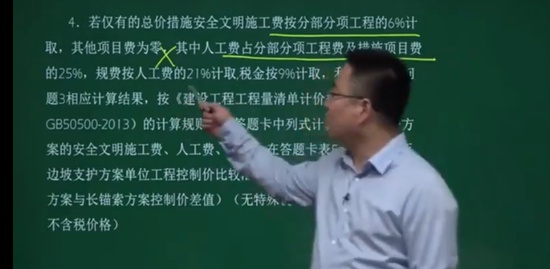 4．若仅有的总价措施安全文明施工费按分部分项工程的6%计
取，其他项目费为零，其中人工费占分部分项工程费及措施项目费
的25%，规费按人工费的21%计取,税金按9%计取，利 问
题3相应计算结果，按《建设工程工程量清单计价
GB50500-2013）的计算规则 答题卡中列式计 方
案的安全文明施工费、人工费、 在答题卡表
边坡支护方案单位工程控制价比较
方案与长锚索方案控制价差值）（无特殊
不含税价格）